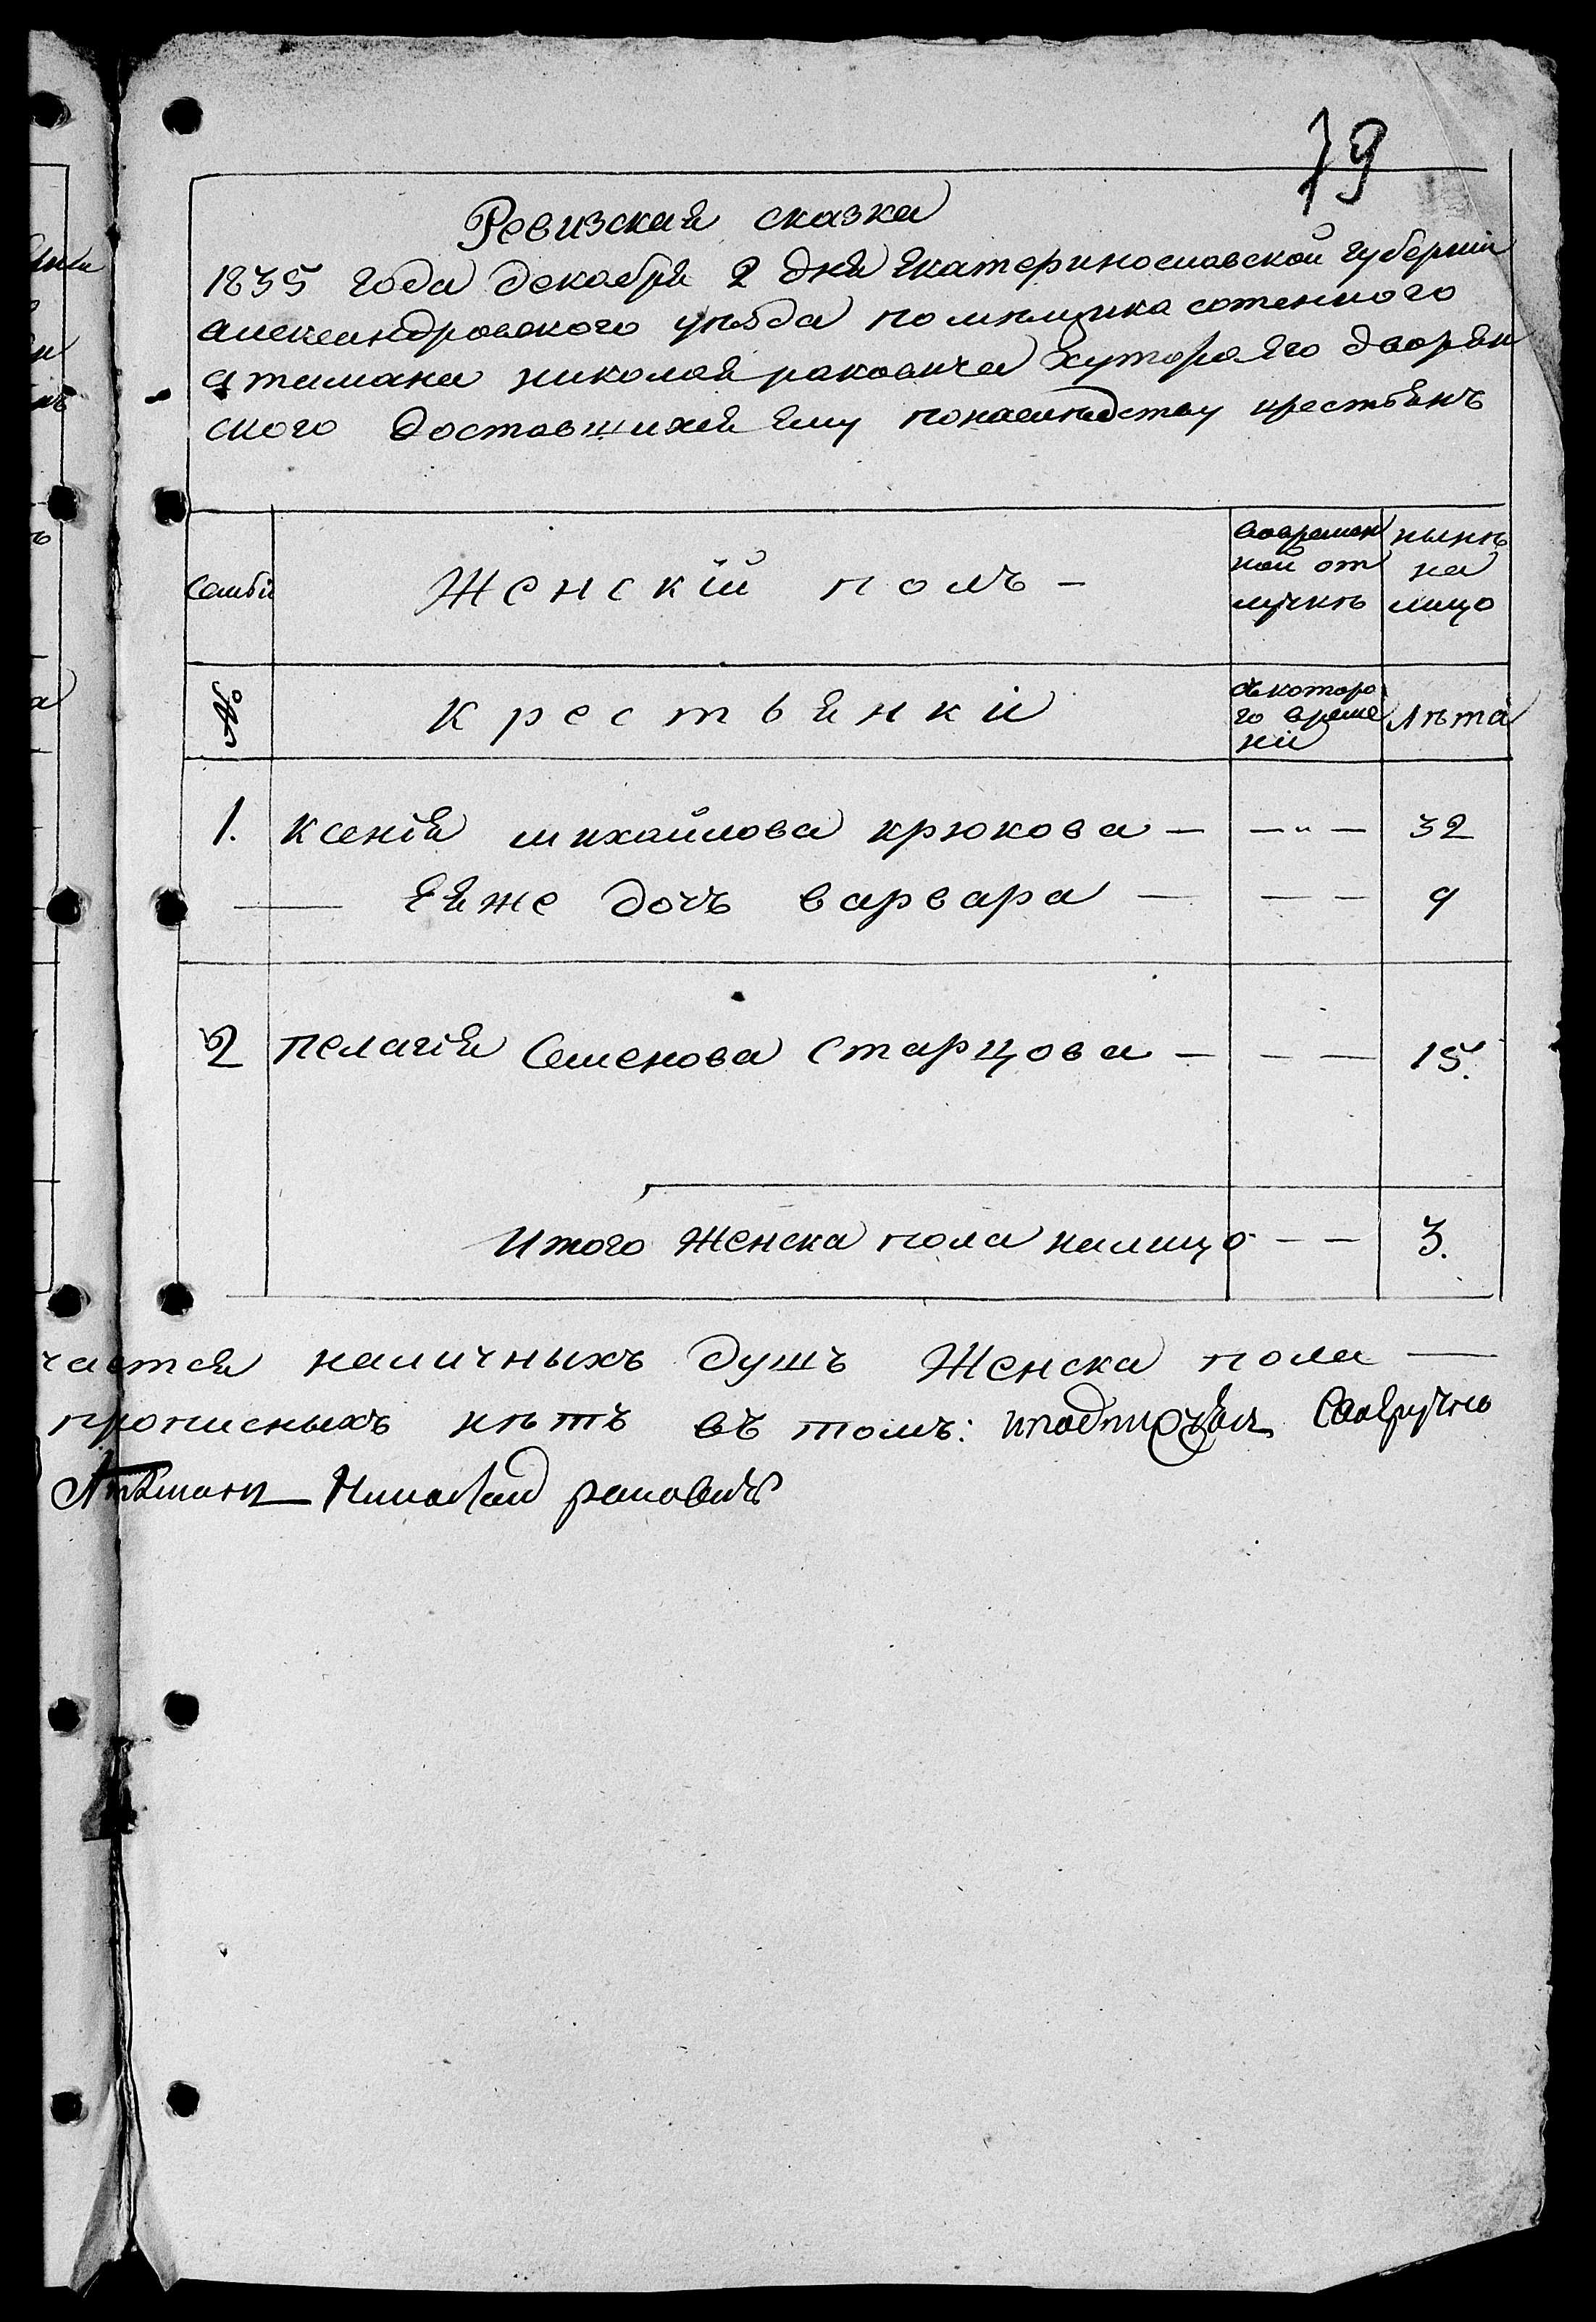 79
Ревизская сказка
1835 года декабря 2 дня Екатеринославской губернии
александровского уѣзда помѣщика сотенного
атамана николая раковича хутора его дворян
ского доставшихся ему понаследству крестьянъ
Семьи
Женскiй полъ -
вовремен
ной от
лучкѣ
нынѣ
на
лицо
№
крестьянки
съ которо
го време
ни
Лѣта
1. ксенiя михайлова крюкова - - " - 32
— Ееже дочъ варвара — — — 9
2 пелагiя Семенова старцова - - — 15.
Итого женска пола налицо - - 3.
чается наличныхъ душъ Женска пола —
прописныхъ нѣтъ въ томъ:
Атаманъ Николай раковичъ